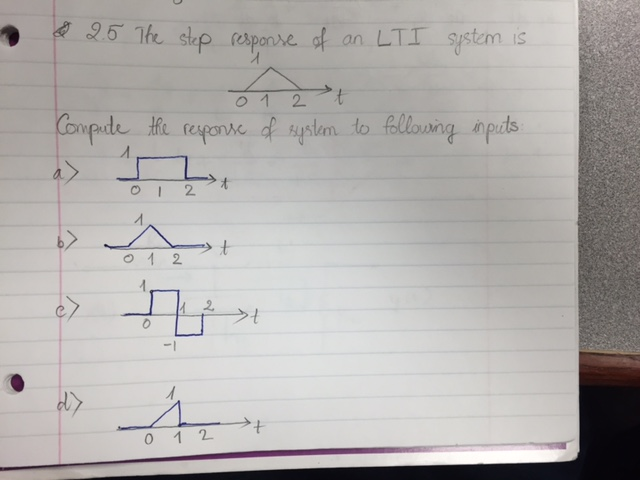 2.5 The step response of an LTI system is
1
0 1 2 t
Compute the response of system to following inputs.
a> 1
0 1 2 t
b> 1
0 1 2 t
c> 1
0 1 2 t
-1
d> 1
0 1 2 t